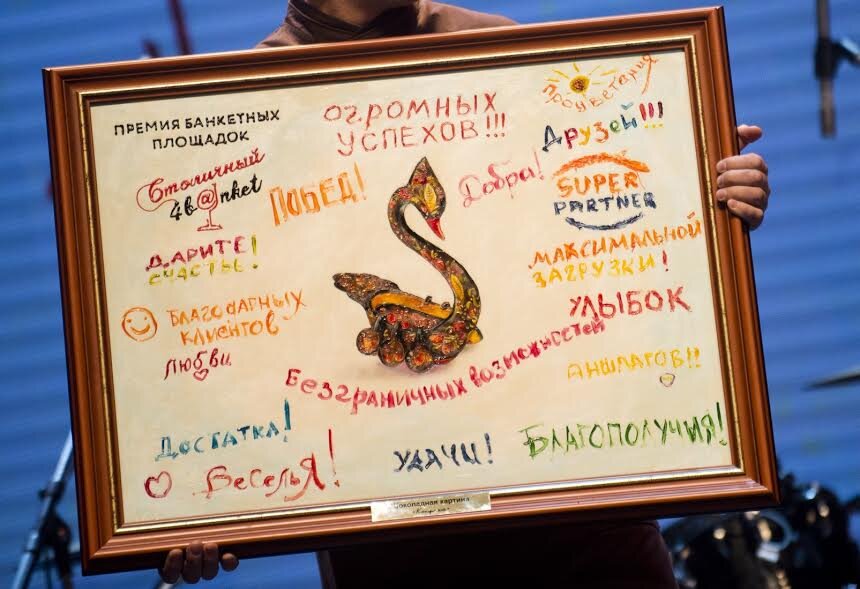 ПРЕМИЯ БАНКЕТНЫХ
ПЛОЩАДОК
ОГРОМНЫХ
УСПЕХОВ!!!
Процветания
Друзей!!!
Столичный
4b@nket
ПОБЕД!
Добра!
SUPER
PARTNER
ДАРИТЕ
СЧАСТЬЕ!
МАКСИМАЛЬНОЙ
ЗАГРУЗКИ!
УЛЫБОК
БЛАГОДАРНЫХ
КЛИЕНТОВ
Любви
Безграничных возможностей
АНШЛАГОВ!!
ДОСТАТКА!
ВЕСЕЛЬЯ!
УДАЧИ!
БЛАГОПОЛУЧИЯ!
Шоколадная картина